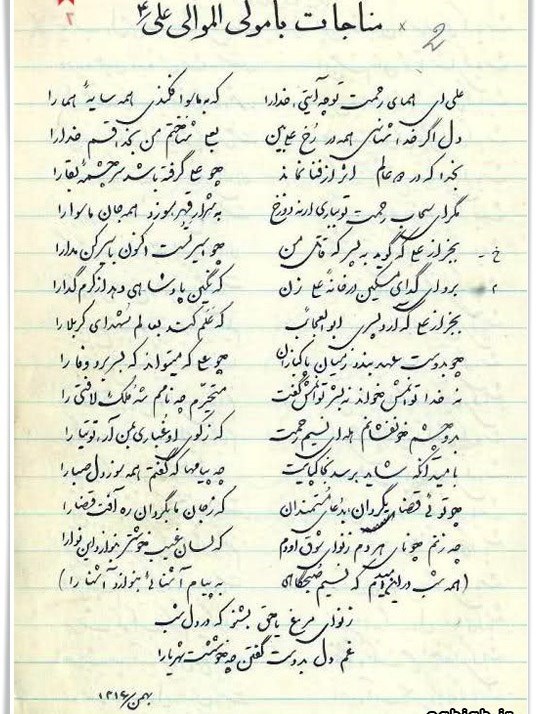 مناجات با مولی الموالی علی ع
علی ای همای رحمت تو چه آیتی خدا را که به ماسوا فکندی همه سایهٔ هما را
دل اگر خداشناسی همه در رخ علی بین بعلی شناختم من بخدا قسم خدا را
بخدا که در دو عالم اثر از فنا نماند چو علی گرفته باشد سرچشمهٔ بقا را
مگر ای سحاب رحمت تو بباری ارنه دوزخ به شرار قهر سوزد همه جان ماسوا را
بجز از علی که گوید به پسر که قاتل من چو اسیر تست اکنون باسیر کن مدارا
برو ای گدای مسکین در خانهٔ علی زن که نگین پادشاهی دهد از کرم گدا را
بجز از علی که آرد پسری ابوالعجائب که علم کند بعالم شهدای کربلا را
چو بدوست عهد بندد ز میان پاکبازان چو علی که میتواند که بسر برد وفا را
نه خدا توانمش خواند نه بشر توانمش گفت متحیرم چه نامم شه ملک لافتی را
بدو چشم خونفشانم هله ای نسیم رحمت که ز کوی او غباری بمن آر توتیا را
بامید آنکه شاید برسد بخاک پایت چه پیامها که گفتم همه سوز دل صبا را
چو توئی قضا بگردان بدعای مستمندان که ز جان ما بگردان ره آفت قضا را
چه زنم چو نای هر دم ز نوای شوق او دم که لسان غیب خوشتر بنوازد این نوا را
(همه شب در این امیدم که نسیم صبحگاهی به پیام آشنائی بنوازد آشنا را)
ز نوای مرغ یا حق بشنو که در دل شب
غم دل بدوست گفتن چه خوشست شهریارا
بهمن